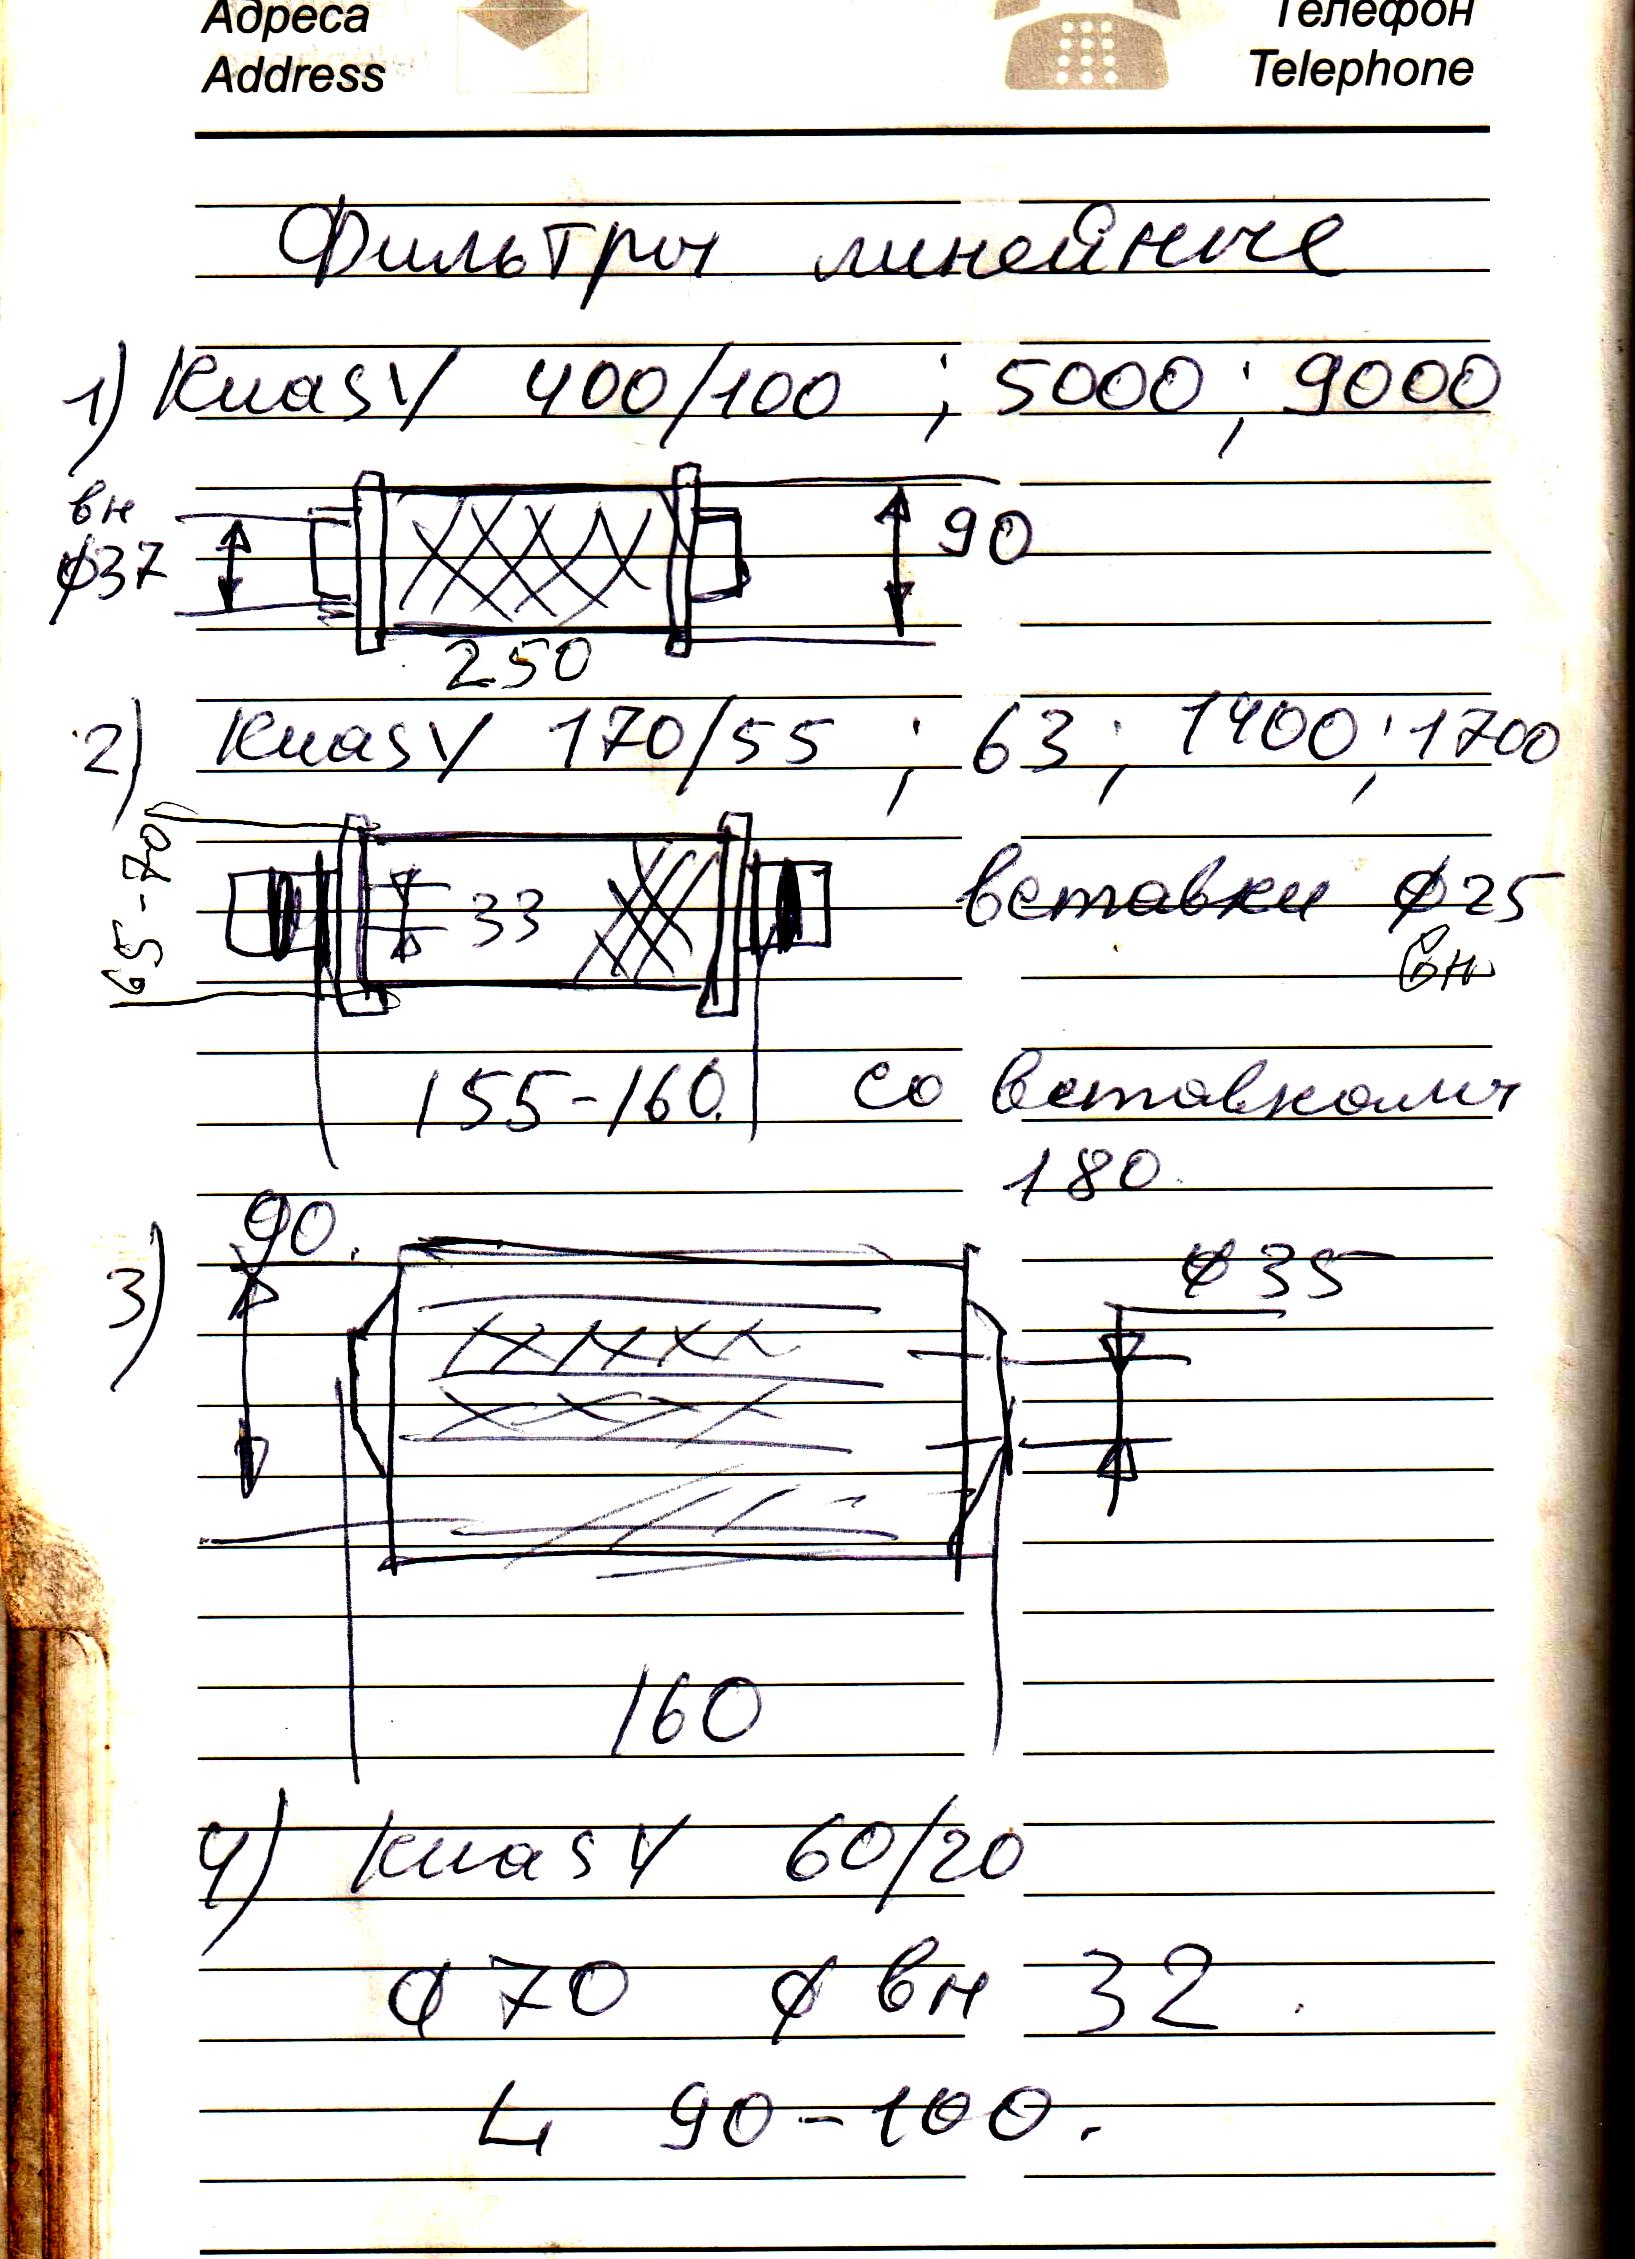 Адреса
Address
Телефон
Telephone
Фильтры линейные
1) KuasY 400/100 ; 5000 ; 9000
вн
ϕ37
90
250
2) KuasY 170/55 ; 63 ; 1400 ; 1700
65-70
33
вставки ϕ25
вн
155-160. со вставками
180.
3)
90.
ϕ35
160
4) KuasY 60/20
ϕ70 ϕ вн 32.
L 90-100.